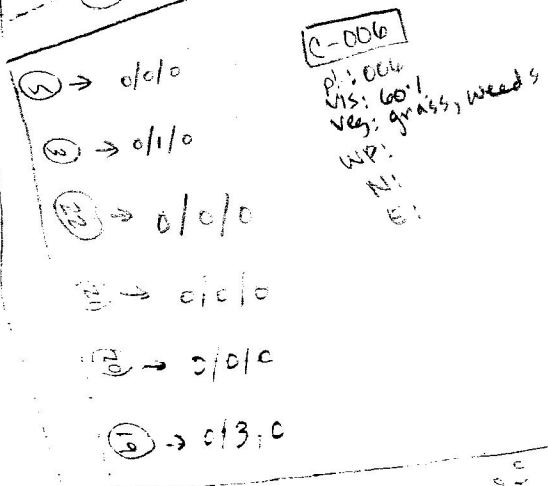 C-006
pl: 006
vis: 60%
veg: grass, weeds
WP:
N:
E:
→ 0/0/0
3 → 0/1/0
22 → 0/0/0
21 → 0/0/0
20 → 0/0/0
19 → 0/3/0